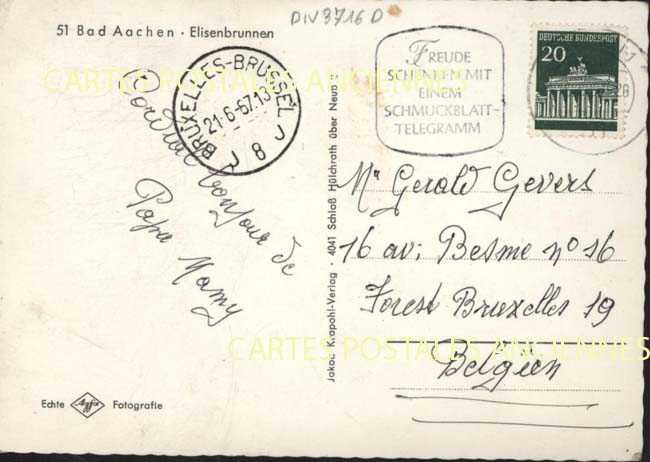 DIV3716D
51 Bad Aachen · Elisenbrunnen
BRUXELLES-BRUSSEL
21-6-67.13
8
FREUDE
SCHENKEN MIT
EINEM
SCHMUCKBLATT-
TELEGRAMM
DEUTSCHE BUNDESPOST
20
CARTES POSTALES ANCIENNES
Cordial bonjour de
Papa Mamy
Jakob Krapohl-Verlag · 4041 Schloß Hülchrath über Neuß
Mr Gerald Gevers
16 av: Besme n° 16
Forest Bruxelles 19
Belgien
CARTES POSTALES ANCIENNES
Echte Agfa Fotografie